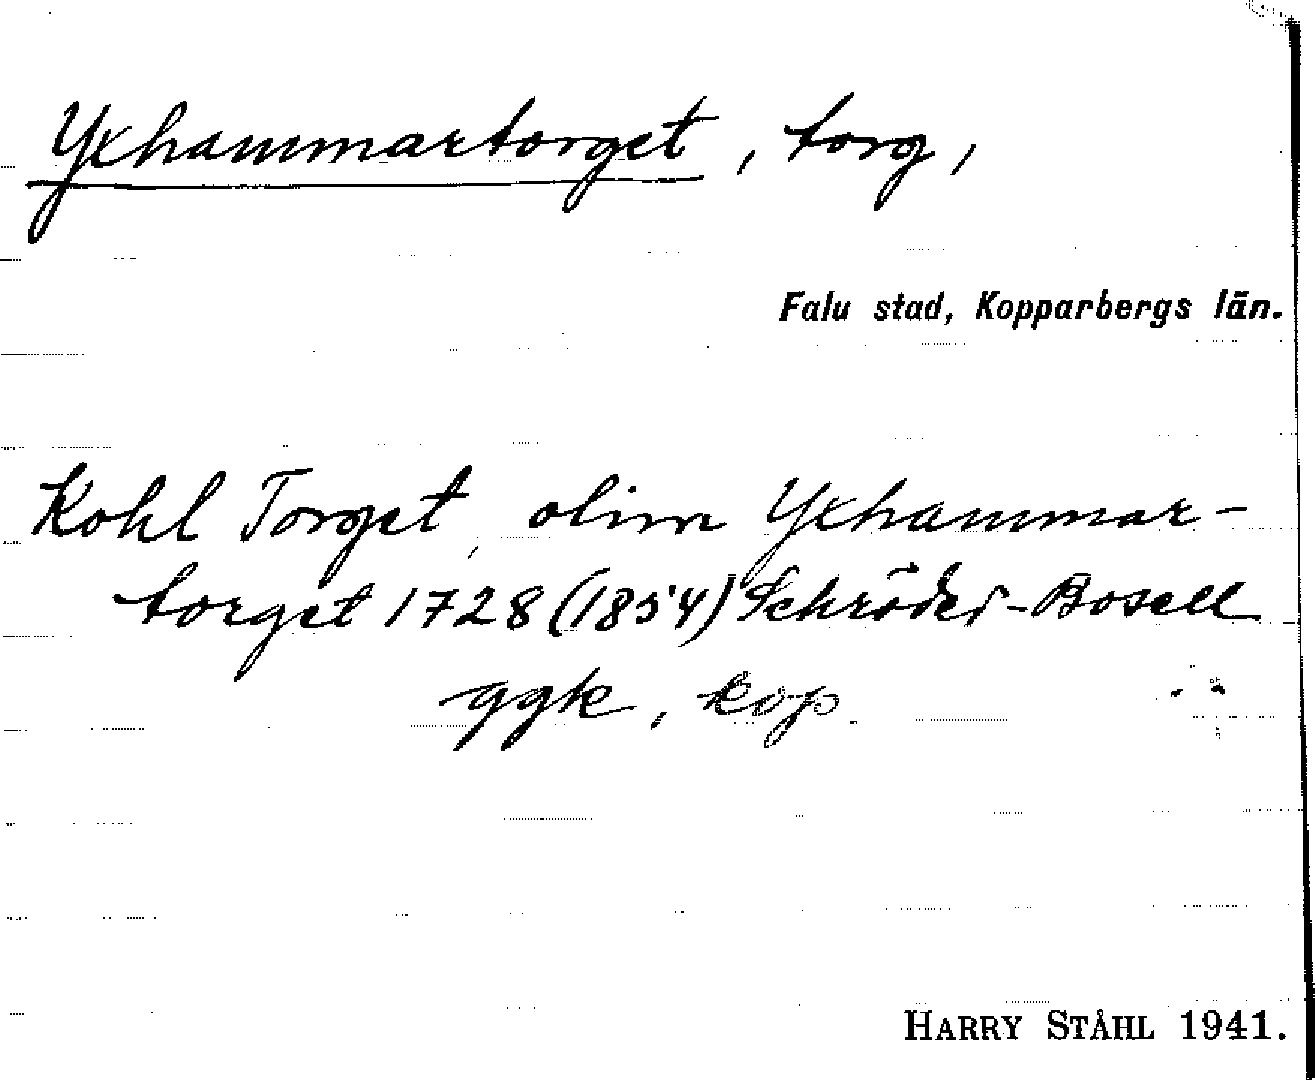 Yxhammartorget, torg,
Falu stad, Kopparbergs län.
Kohl Torget, olim Yxhammar-
torget 1728 (1854) Schröder-Bosell
ggk, kop.
HARRY STÅHL 1941.